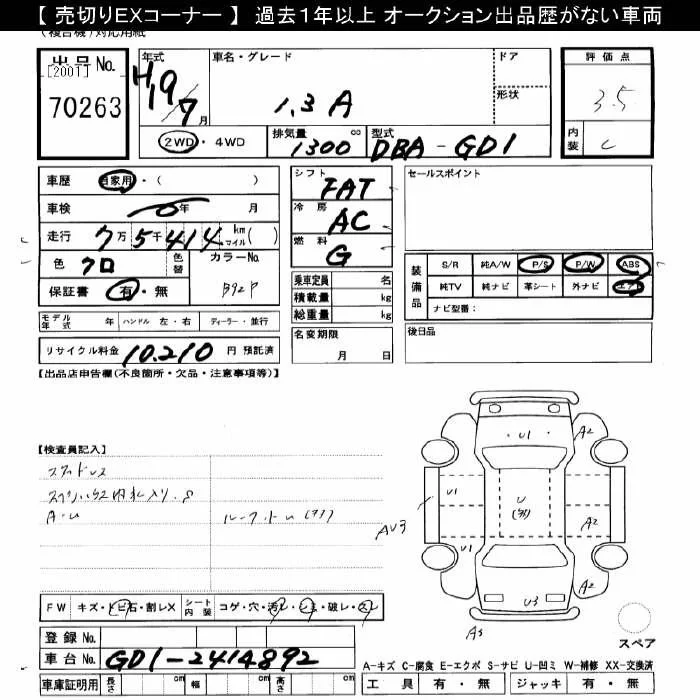 【 売切りEXコーナー 】 過去1年以上 オークション出品歴がない車両
(複合機)対応用紙
出品 No. [2001] 70263
年式 H19/7月
車名・グレード 1.3 A
ドア
形状
評価点 3.5
内装 C
2WD・4WD
排気量 1300 cc
型式 DBA-GD1
車歴 自家用・( )
車検 0年 月
走行 7万5千414 km マイル( )
色 クロ 色替 カラーNo. B92P
保証書 有・無
シフト FAT
冷房 AC
燃料 G
セールスポイント
乗車定員 名
積載量 kg
総重量 kg
装備品 S/R 純A/W P/S P/W ABS
純TV 純ナビ 革シート 外ナビ エアB
ナビ型番:
モデル年式 年 ハンドル 左・右 ディーラー・並行
名変期限 月 日
後日品
リサイクル料金 10.210 円 預託済
【出品店申告欄(不良箇所・欠品・注意事項等)】
【検査員記入】
スタッドレス
A・U
ルーフ トU (カナ)
U1 A2
U1 U A2
AU3
U1 A2
U3
A3
FW キズ・トビ石・割レX シート内装 コゲ・穴・汚レ・シミ・破レ・スレ
登録 No.
車台 No. GD1-2414892
スペア
A-キズ C-腐食 E-エクボ S-サビ U-凹ミ W-補修 XX-交換済
車庫証明用 長さ cm 幅 cm 高さ cm
工具 有・無 ジャッキ 有・無